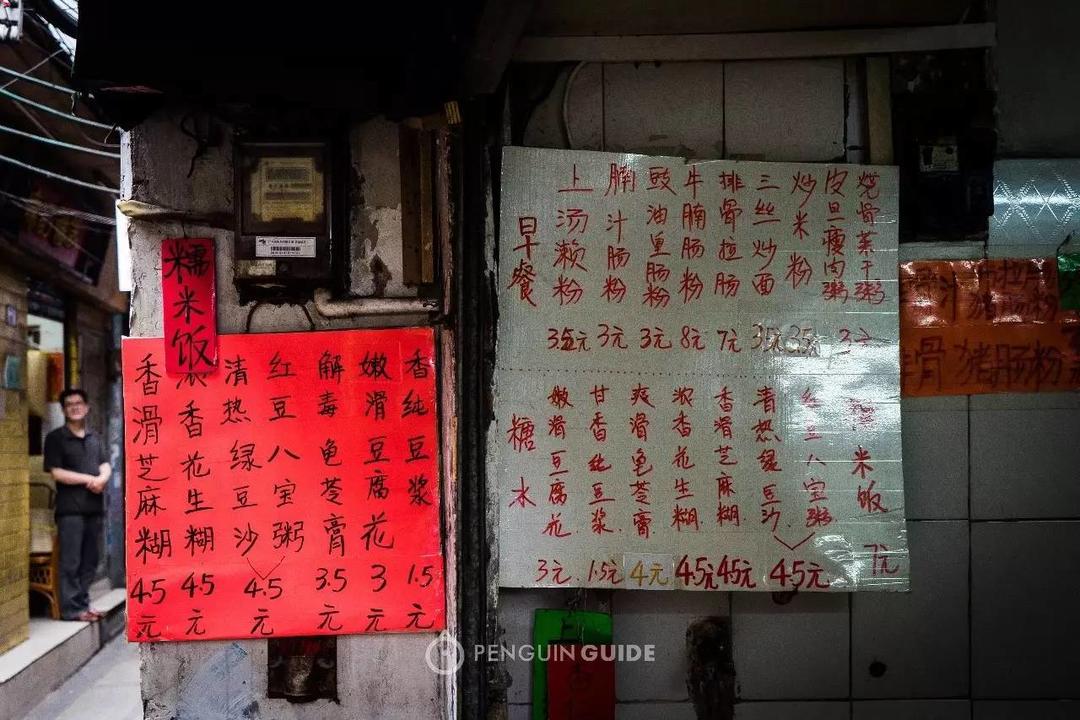 糯米饭
香滑芝麻糊 4.5元
浓香花生糊 4.5元
清热绿豆沙
红豆八宝粥
4.5元
解毒龟苓膏 3.5元
嫩滑豆腐花 3元
香纯豆浆 1.5元
早餐
上汤濑粉 3.5元
腩汁肠粉 3元
豉油皇肠粉 3元
牛腩肠粉 8元
排骨拉肠 7元
三丝炒面 3.5元
炒米粉 3.5元
皮旦瘦肉粥
烧骨菜干粥
3元
糖水
嫩滑豆腐花 3元
甘香纯豆浆. 1.5元
爽滑龟苓膏 4元
浓香花生糊. 4.5元
香滑芝麻糊. 4.5元
清热绿豆沙.
红豆八宝粥
4.5元
糯米饭 7元
汁 猪肠粉
骨 猪肠粉
PENGUIN GUIDE